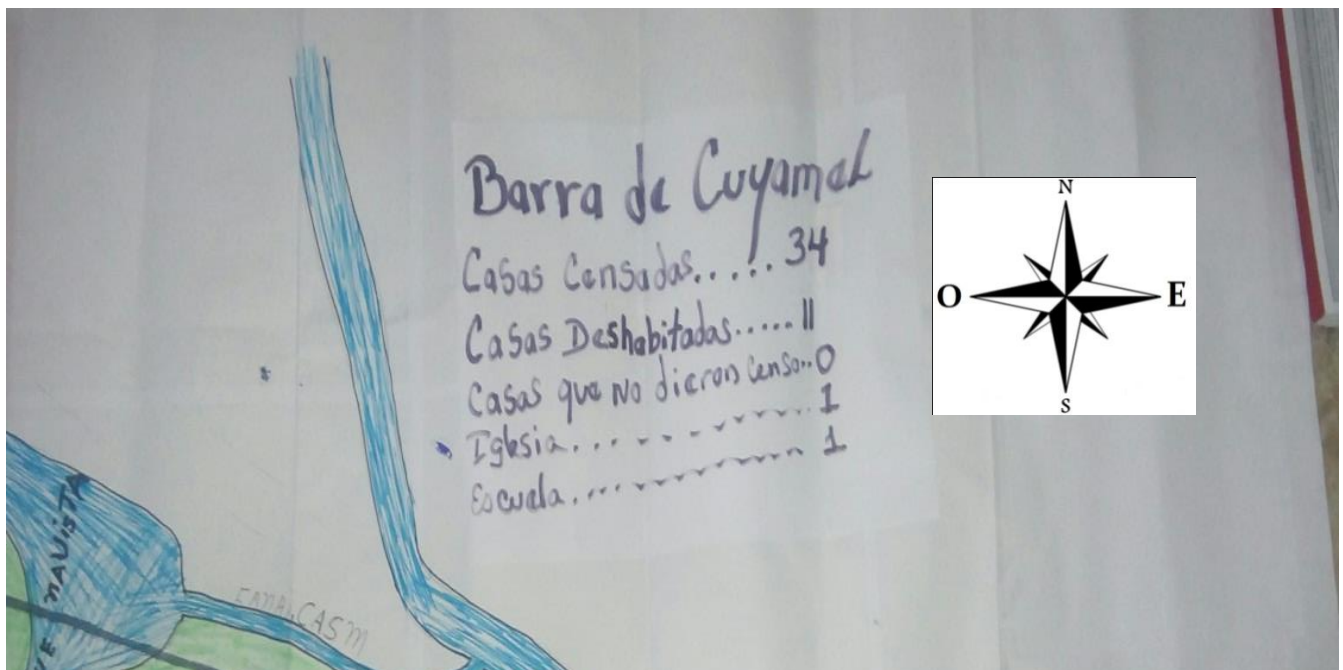 Barra de Cuyamel
Casas Censadas..... 34
Casas Deshabitadas..... 11
Casas que No dieron Censo.. 0
Iglesia............ 1
Escuela............ 1
N
O E
S
NAVISTA
CANAL CASM